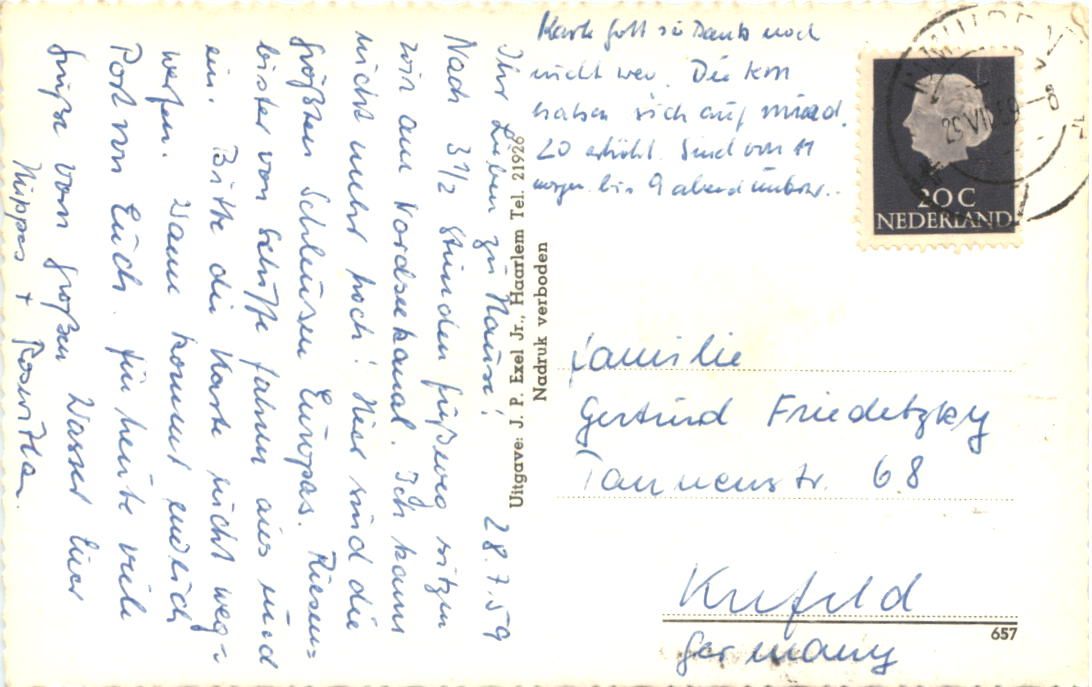 Ihr Lieben zu Hause! 28.7.59
Nach 3 1/2 Stunden Fußweg sitzen
wir am Nordseekanal. Ich kann
nicht mehr hoch! Hier sind die
größten Schleusen Europas. Riesen=
biester von Schiffe fahren aus und
ein. Bitte die Karte nicht weg=
werfen. Dann kommt endlich
Post von Euch. Für heute viele
Grüße vom großen Wasser Euer
+ Roswitha.
Karte Gott sei Dank noch
nicht weg. Die km
haben sich auf mind.
20 erhöht. Sind von 11
morgen bis 9 abend
Uitgave: J. P. Exel Jr., Haarlem Tel. 21926
Nadruk verboden
20 C
NEDERLAND
Familie
Gertrud Friedetzky
Tannenstr. 68
Krefeld
Germany
657